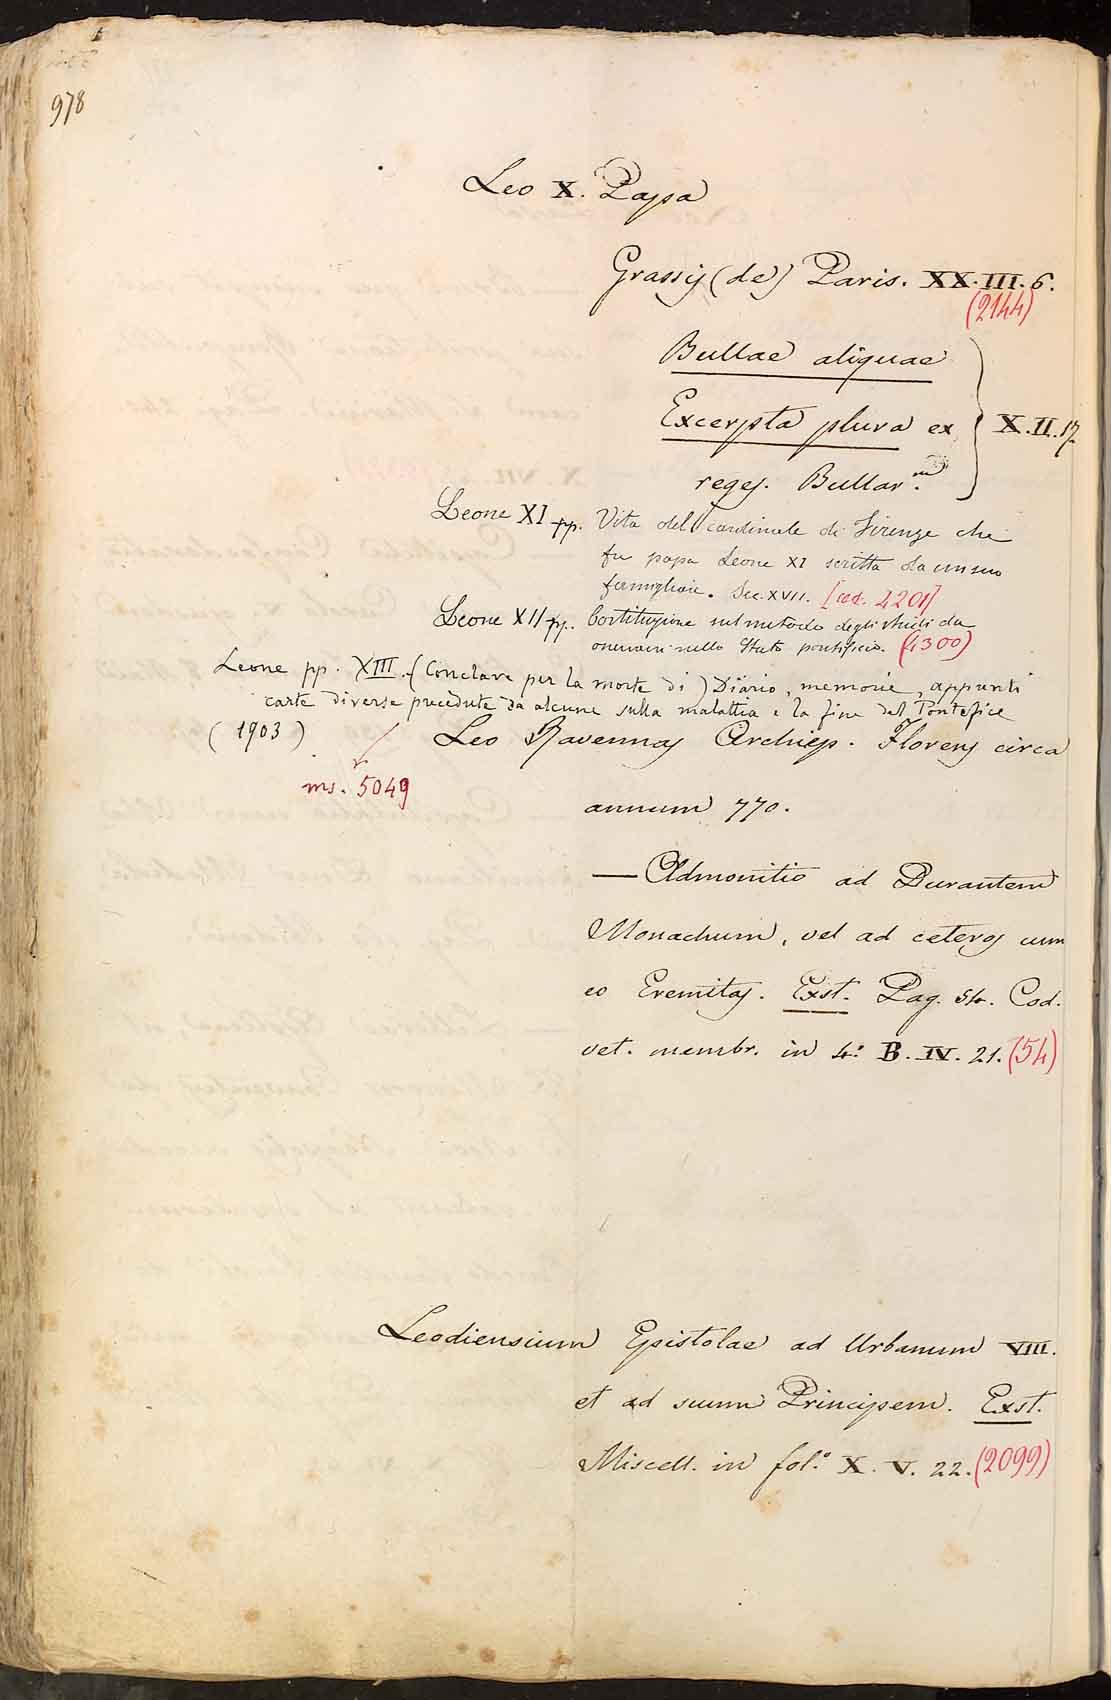 978
Leo X. Papa
Grassis (de) Paris. XX. III. 6.
(2144)
Bullae aliquae
Excerpta plura ex X. II. 17
reges. Bullar.m
Leone XI pp. Vita del cardinale di Firenze che
fu papa Leone XI scritta da un suo
famigliare. Sec. XVII. [cod. 2201]
Leone XII pp. Costituzione sul metodo degli studi da
osservarsi nello Stato pontificio. (1300)
Leone pp. XIII. (Conclave per la morte di) Diario, memorie, appunti
carte diverse precedute da alcune sulla malattia e la fine del Pontefice
(1903)
ms. 5049
Leo Ravennas Archiep. Florens circa
annum 770.
— Admonitio ad Durantem
Monachum, vel ad ceteros cum
eo Eremitas. Exst. Pag. 54. Cod.
vet. membr. in 4.º B. IV. 21. (54)
Leodiensium Epistolae ad Urbanum VIII.
et ad suum Principem. Exst.
Miscell. in fol.º X. V. 22. (2099)